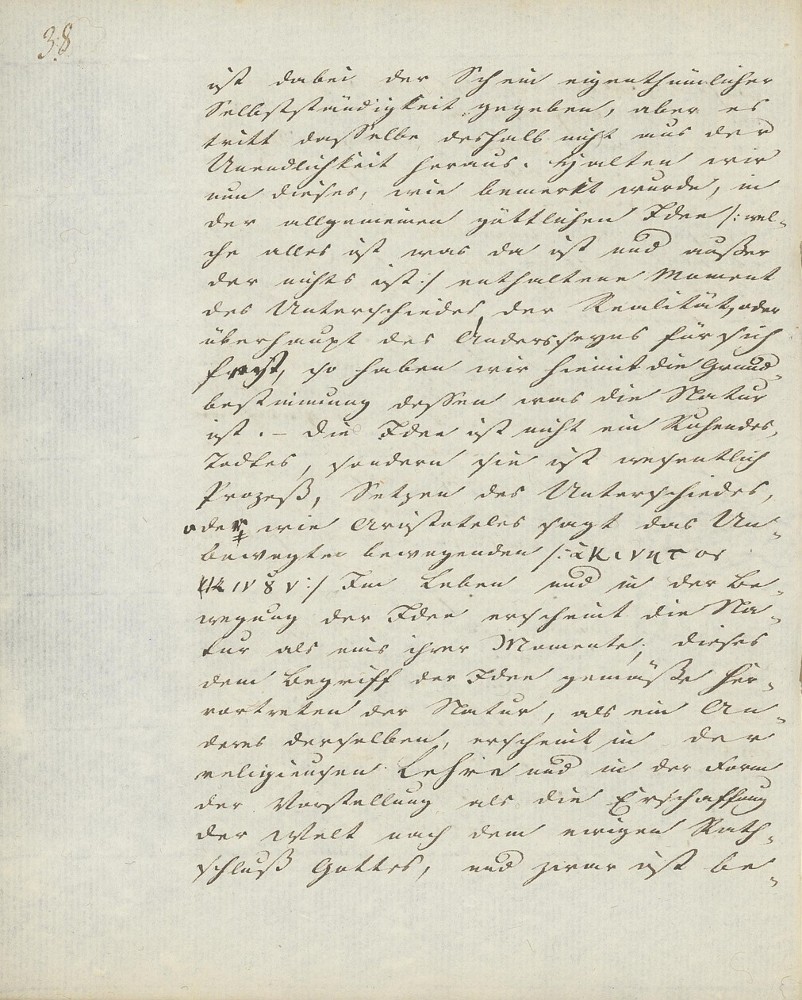 38
ist dabei der Schein eigenthümlicher
Selbstständigkeit gegeben, aber es
tritt dasselbe deshalb nicht aus der
Unendlichkeit heraus. Halten wir
nun dieses, wie bemerkt wurde, in
der allgemeinen göttlichen Idee /: wel-
che alles ist was da ist und außer
der nichts ist :/ enthaltene Moment
des Unterschiedes, der Realität, oder
überhaupt des Andersseyns für sich
fest, so haben wir hiemit die Grund-
bestimmung dessen was die Natur
ist. – Die Idee ist nicht ein Ruhendes,
Todtes, sondern sie ist wesentlich
Prozeß, Setzen des Unterschiedes,
oder wie Aristoteles sagt das Un-
bewegte bewegenden /: ἀκινητος
κινȣν :/ Im Leben und in der Be-
wegung der Idee erscheint die Na-
tur als eins ihrer Momente; dieses
dem Begriff der Idee gemäße Her-
vortreten der Natur, als ein An-
deres derselben, erscheint in der
religieusen Lehre und in der Form
der Vorstellung als die Erschaffung
der Welt nach dem ewigen Rath-
schluß Gottes, und zwar ist be-